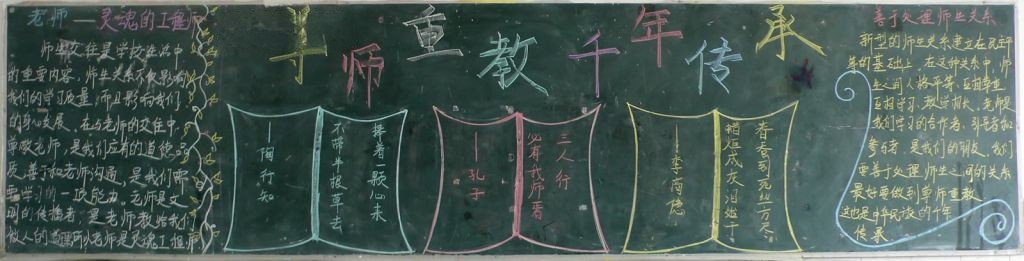 老师——灵魂的工程师
师生交往是学校生活中
的重要内容，师生关系不仅影响
我们的学习质量，而且影响我们
的身心发展，在与老师的交往中，
尊敬老师，是我们应有的道德品
质，善于和老师沟通，是我们需
要学习的一项能力。老师是文
明的传播者，是老师教给我们
做人的道理所以老师是灵魂工程师
尊师重教千年传承
捧着一颗心来
不带半根草去
——陶行知
三人行
必有我师焉
——孔子
春蚕到死丝方尽
蜡炬成灰泪始干
——李商隐
善于处理师生关系
新型的师生关系建立在民主平
等的基础上，在这种关系中，师
生之间人格平等，互相尊重，
互相学习，教学相长，老师是
我们学习的合作者、引导者和
参与者，是我们的朋友，我们
要善于处理师生之间的关系
最好要做到尊师重教
这也是中华民族的千年
传承